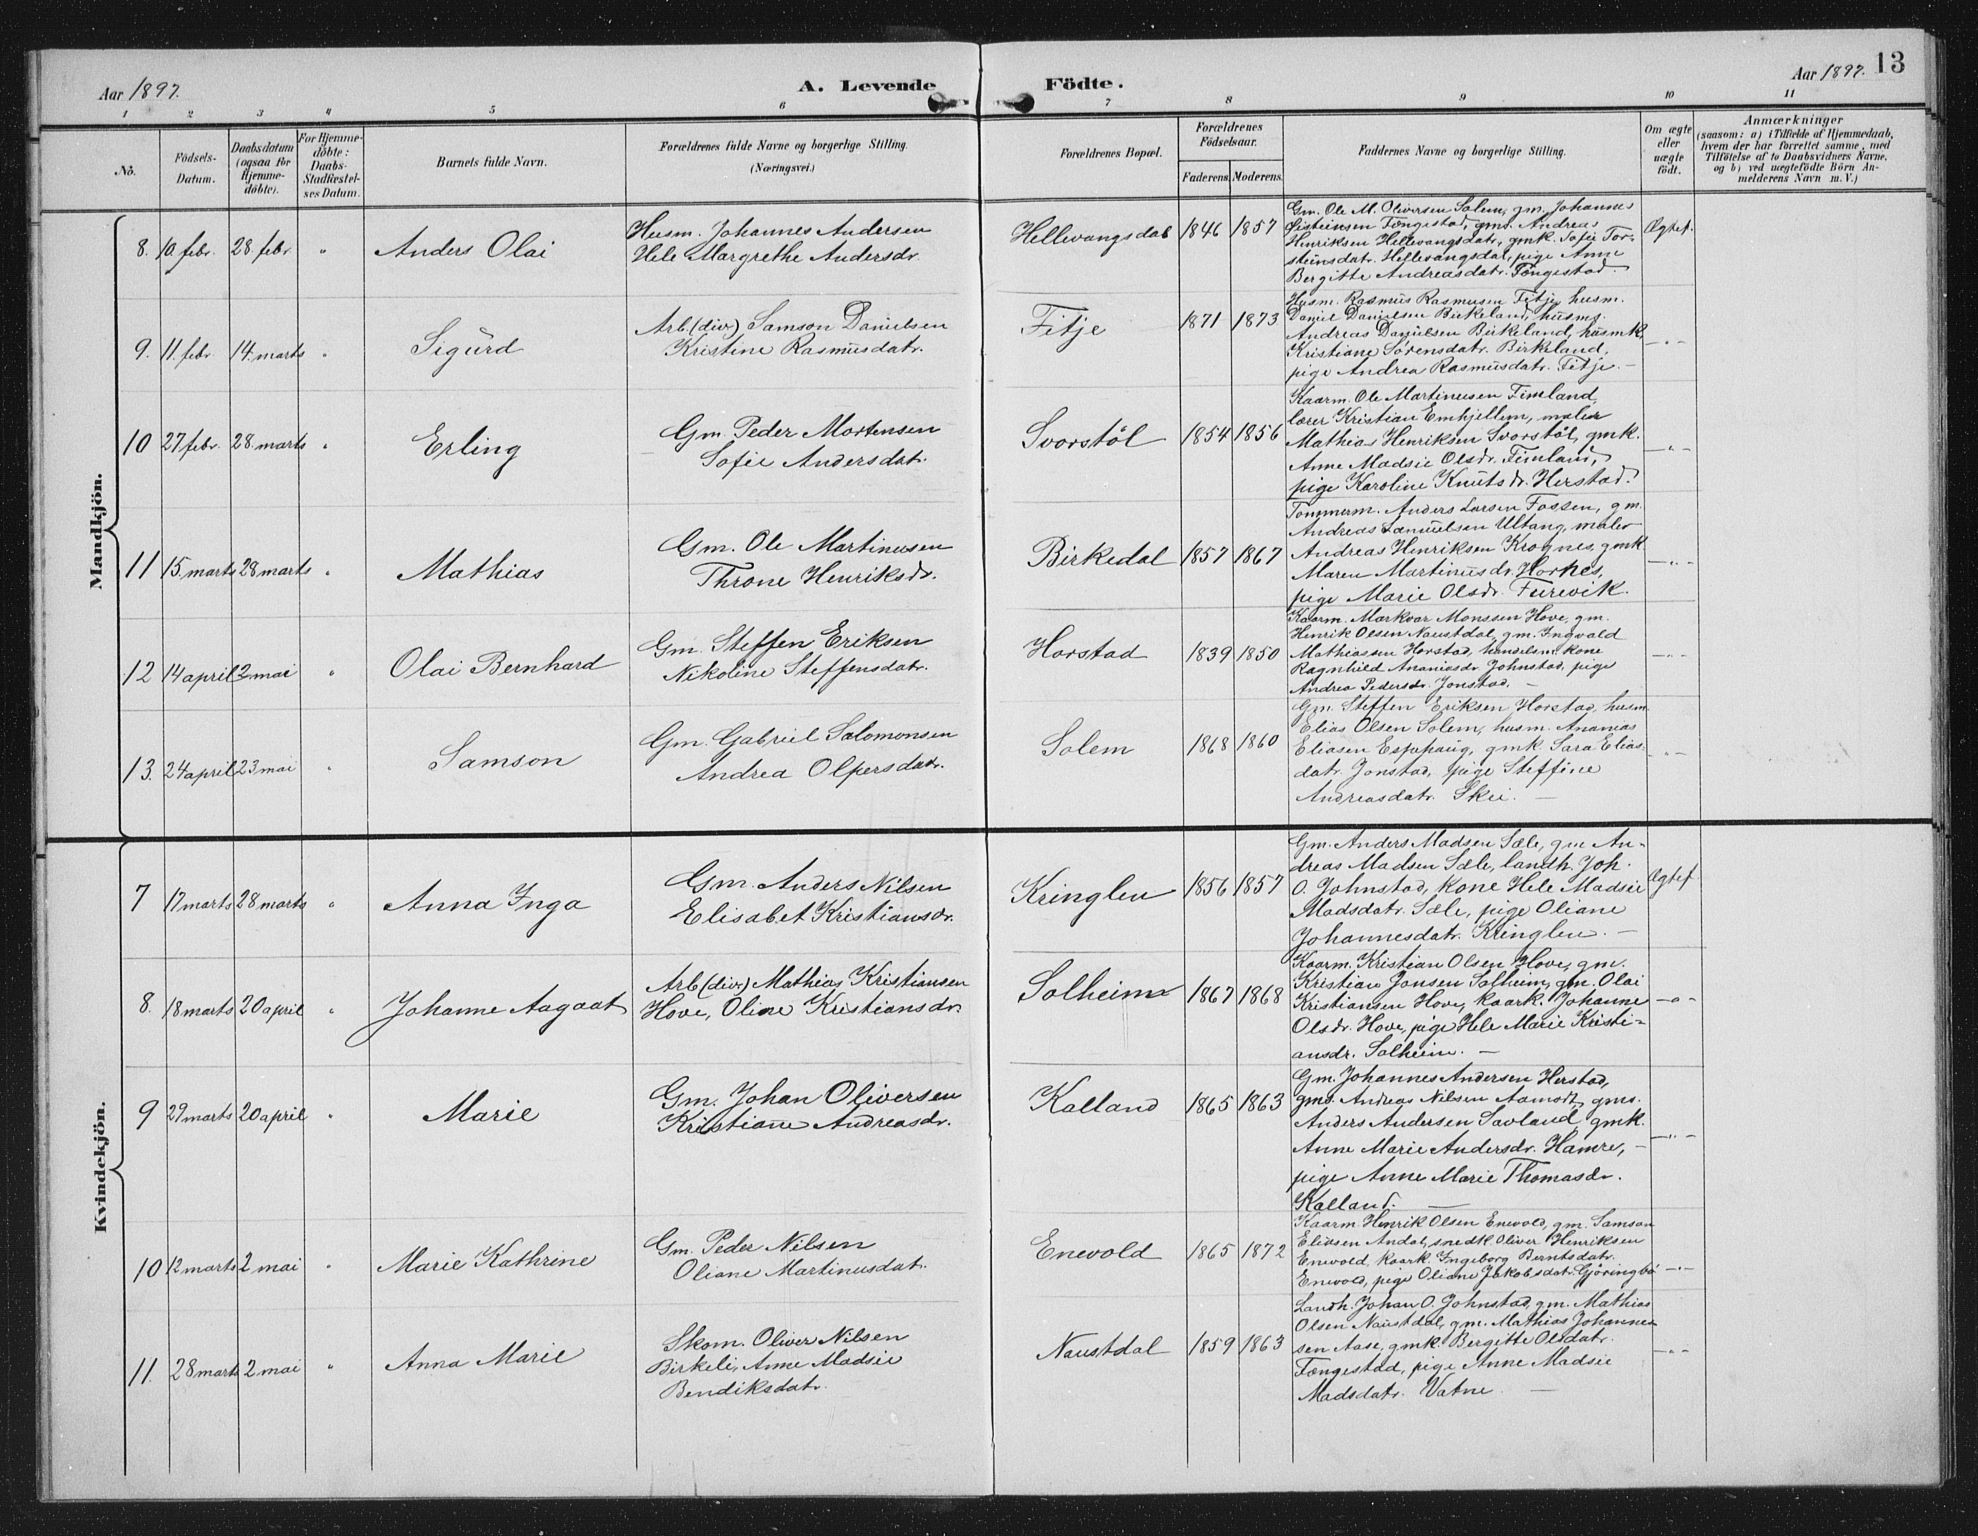 Aar 1897.
A. Levende Födte.
Aar 1897. 13
1 2 3 4 5 6 7 8 9 10 11
No.
Födsels-Datum.
Daabsdatum (ogsaa for Hjemme-döbte).
For Hjemme-döbte: Daabs-Stadfæstel-ses Datum.
Barnets fulde Navn.
Forældrenes fulde Navne og borgerlige Stilling. (Næringsvei.)
Forældrenes Bopæl.
Forældrenes Födselsaar.
Faderens. Moderens.
Faddernes Navne og borgerlige Stilling.
Om ægte eller uægte födt.
Anmærkninger
(saasom: a) i Tilfælde af Hjemmedaab, hvem der har forrettet samme, med Tilföielse af to Daabsvidners Navne, og b) ved uægtefödte Börn An-melderens Navn m. V.)
Mandkjön.
8. 10 febr. 28 febr. " Anders Olai
Husm. Johannes Andersen
Hele Margrethe Andersdr.
Hellevangsdal 1846 1857
Gm. Ole M. Oliversen Solem, gm. Johannes
Sisteinsen Fængestad, gms. Andreas
Henriksen Hellevangsdatr, gmk. Sofie Tor-
steinsdatr. Hellevangsdal, pige Anne
Bergitte Andreasdatr. Fængestad.
Ægtef.
9. 11 febr. 14 marts " Sigurd
Arb. (div.) Samson Danielsen
Kristine Rasmusdatr.
Fitje 1871 1873
Husm. Rasmus Rasmusen Fitje, husm.
Daniel Danielsen Birkeland, husms.
Andreas Danielsen Birkeland, husmk.
Kristiane Sörensdatr. Birkeland,
pige Andrea Rasmusdatr. Fitje. —
— " —
10 27 febr. 28 marts " Erling
Gm. Peder Mortensen
Sofie Andersdatr.
Svorstöl 1854 1856
Kaarm. Ole Martinusen Fimland,
lærer Kristian Emhjellem, maler
Mathias Henriksen Svorstöl, gmk.
Anne Madsie Olsdr. Fimland,
pige Karoline Knutsdr. Herstad.
— " —
11 15 marts 28 marts " Mathias
Gm. Ole Martinusen
Throne Henriksdr.
Birkedal 1857 1867
Tömmerm. Anders Larsen Fossen, gm.
Andreas Samuelsen Ullang, maler
Andreas Henriksen Krognes, gmk
Maren Martinusdr. Hornes,
pige Marie Olsdr. Furevik.
— " —
12 14 april 2 mai " Olai Bernhard
Gm. Steffen Eriksen
Nikoline Steffensdatr.
Horstad 1839 1850
Kaarm. Markvar Monssen Hove, gm.
Henrik Olsen Naustdal, gm. Ingvald
Mathiassen Horstad, handelsm. kone
Ragnhild Ananiasdr. Johnstad, pige
Andrea Pedersdr. Jonstad. —
— " —
13. 24 april 23 mai " Samson
Gm. Gabriel Salomonsen
Andrea Olpersdatr.
Solem 1868 1860
Gm. Steffen Eriksen Horstad, husm.
Elias Olsen Solem, husm. Ananias
Eliasen Espehaug, gmk. Sara Elias-
datr. Jonstad, pige Steffine
Andreasdatr. Skei. —
— " —
Kvindekjön.
7 17 marts 28 marts " Anna Inga
Gm. Anders Nilsen
Elisabet Kristiansdr.
Kringlen 1856 1857
Gm. Anders Madsen Sæle, gm An-
dreas Madsen Sæle, landh. Joh.
O. Johnstad, kone Hele Madsie
Madsdatr. Sæle, pige Oliane
Johannesdatr. Kringlen. —
Ægtef.
8. 18 marts 20 april " Johanne Aagaat
Arb. (div.) Mathias Kristiansen
Hove, Oline Kristiansdr.
Solheim 1867 1868
Kaarm. Kristian Olsen Hove, gm.
Kristian Jonsen Solheim, gm. Olai
Kristiansen Hove, kaark. Johanne
Olsdr. Hove, pige Hele Marie Kristi-
ansdr. Solheim. —
— " —
9 29 marts 20 april " Marie
Gm. Johan Oliversen
Kristiane Andreasdr.
Kalland 1865 1863
Gm. Johannes Andersen Herstad,
gms. Andreas Nilsen Aamodt, gms.
Anders Andersen Savland, gmk.
Anne Marie Andersdr. Hamre, —
pige Anne Marie Thomasdr.
Kalland. —
— " —
10 12 marts 2 mai " Marie Kathrine
Gm. Peder Nilsen
Oliane Martinusdatr.
Enevold 1865 1872
Kaarm. Henrik Olsen Enevold, gm. Samson
Eliasen Andal, snedk. Oliver Henriksen
Enevold, kaark. Ingeborg Berntsdatr.
Enevold, pige Oliane Jakobsdatr. Gjöringbö
— " —
11. 28 marts 2 mai " Anna Marie
Skom. Oliver Nilsen
Birkeli, Anne Madsie
Bendiksdatr.
Naustdal 1859 1863
Landh. Johan O. Johnstad, gm. Mathias
Olsen Naustdal, gm. Mathias Johanne-
sen Aase, gmk. Bergitte Olsdatr.
Fængestad, pige Anne Madsie
Madsdatr. Vatne. —
— " —